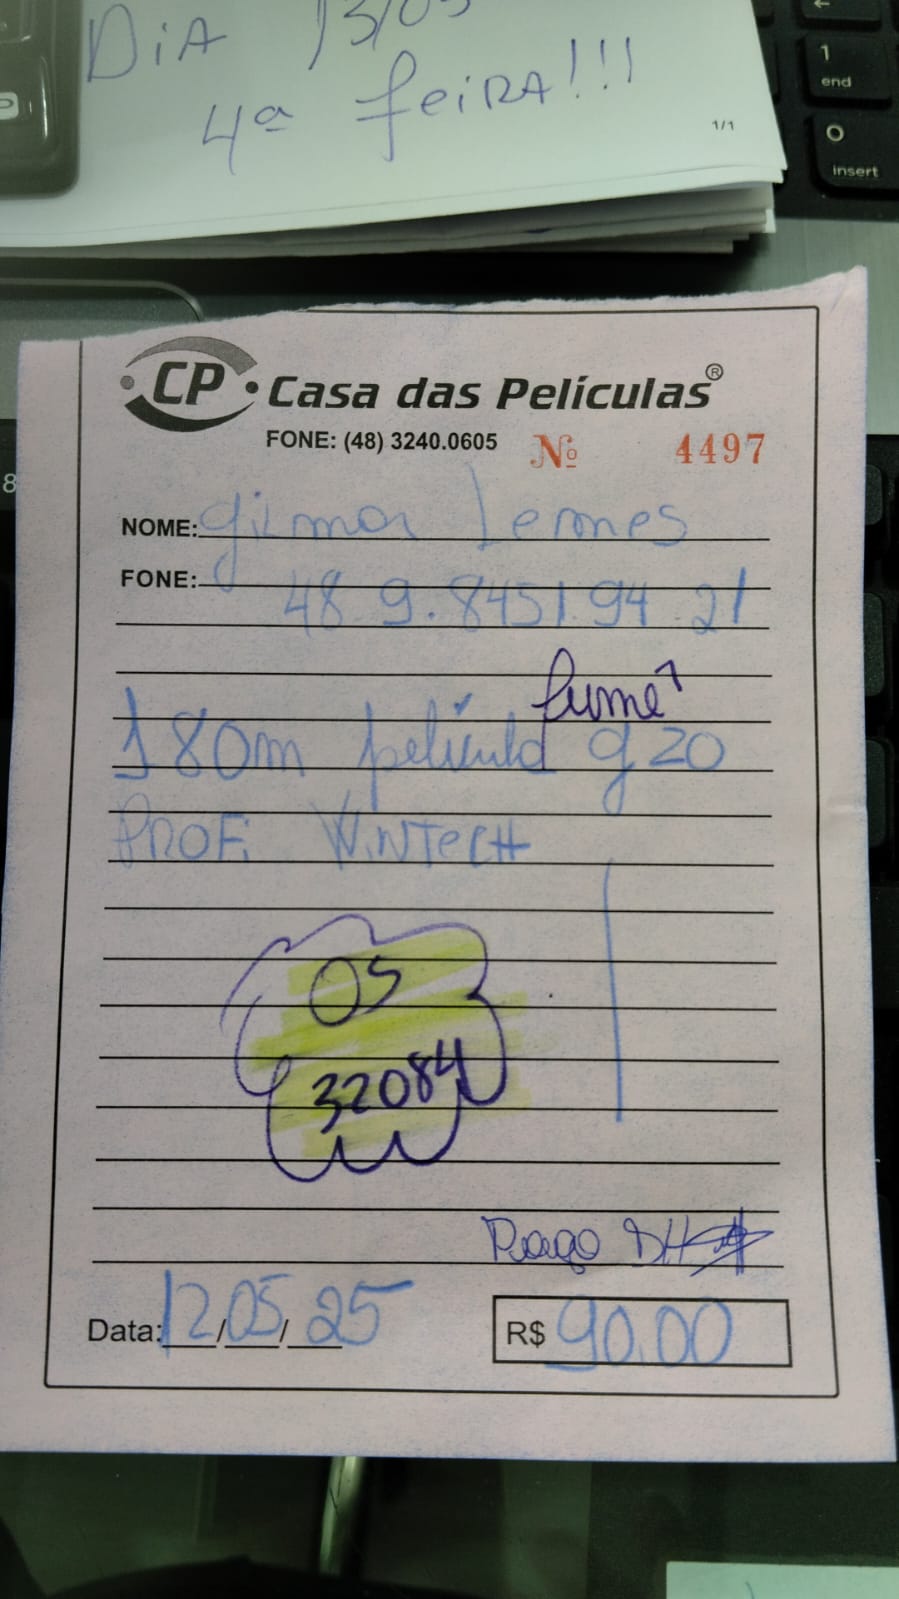 DiA 13/05
4ª feiRA!!!
1/1
1
end
0
insert
8
CP Casa das Películas®
FONE: (48) 3240.0605 Nº 4497
NOME: Gilmar Lemes
FONE: 48 9.8451.94 21
fumê
1 80m película g20
PROF. WiNTeCH
OS
32084
Pago
Data: 12/05/25 R$ 90,00